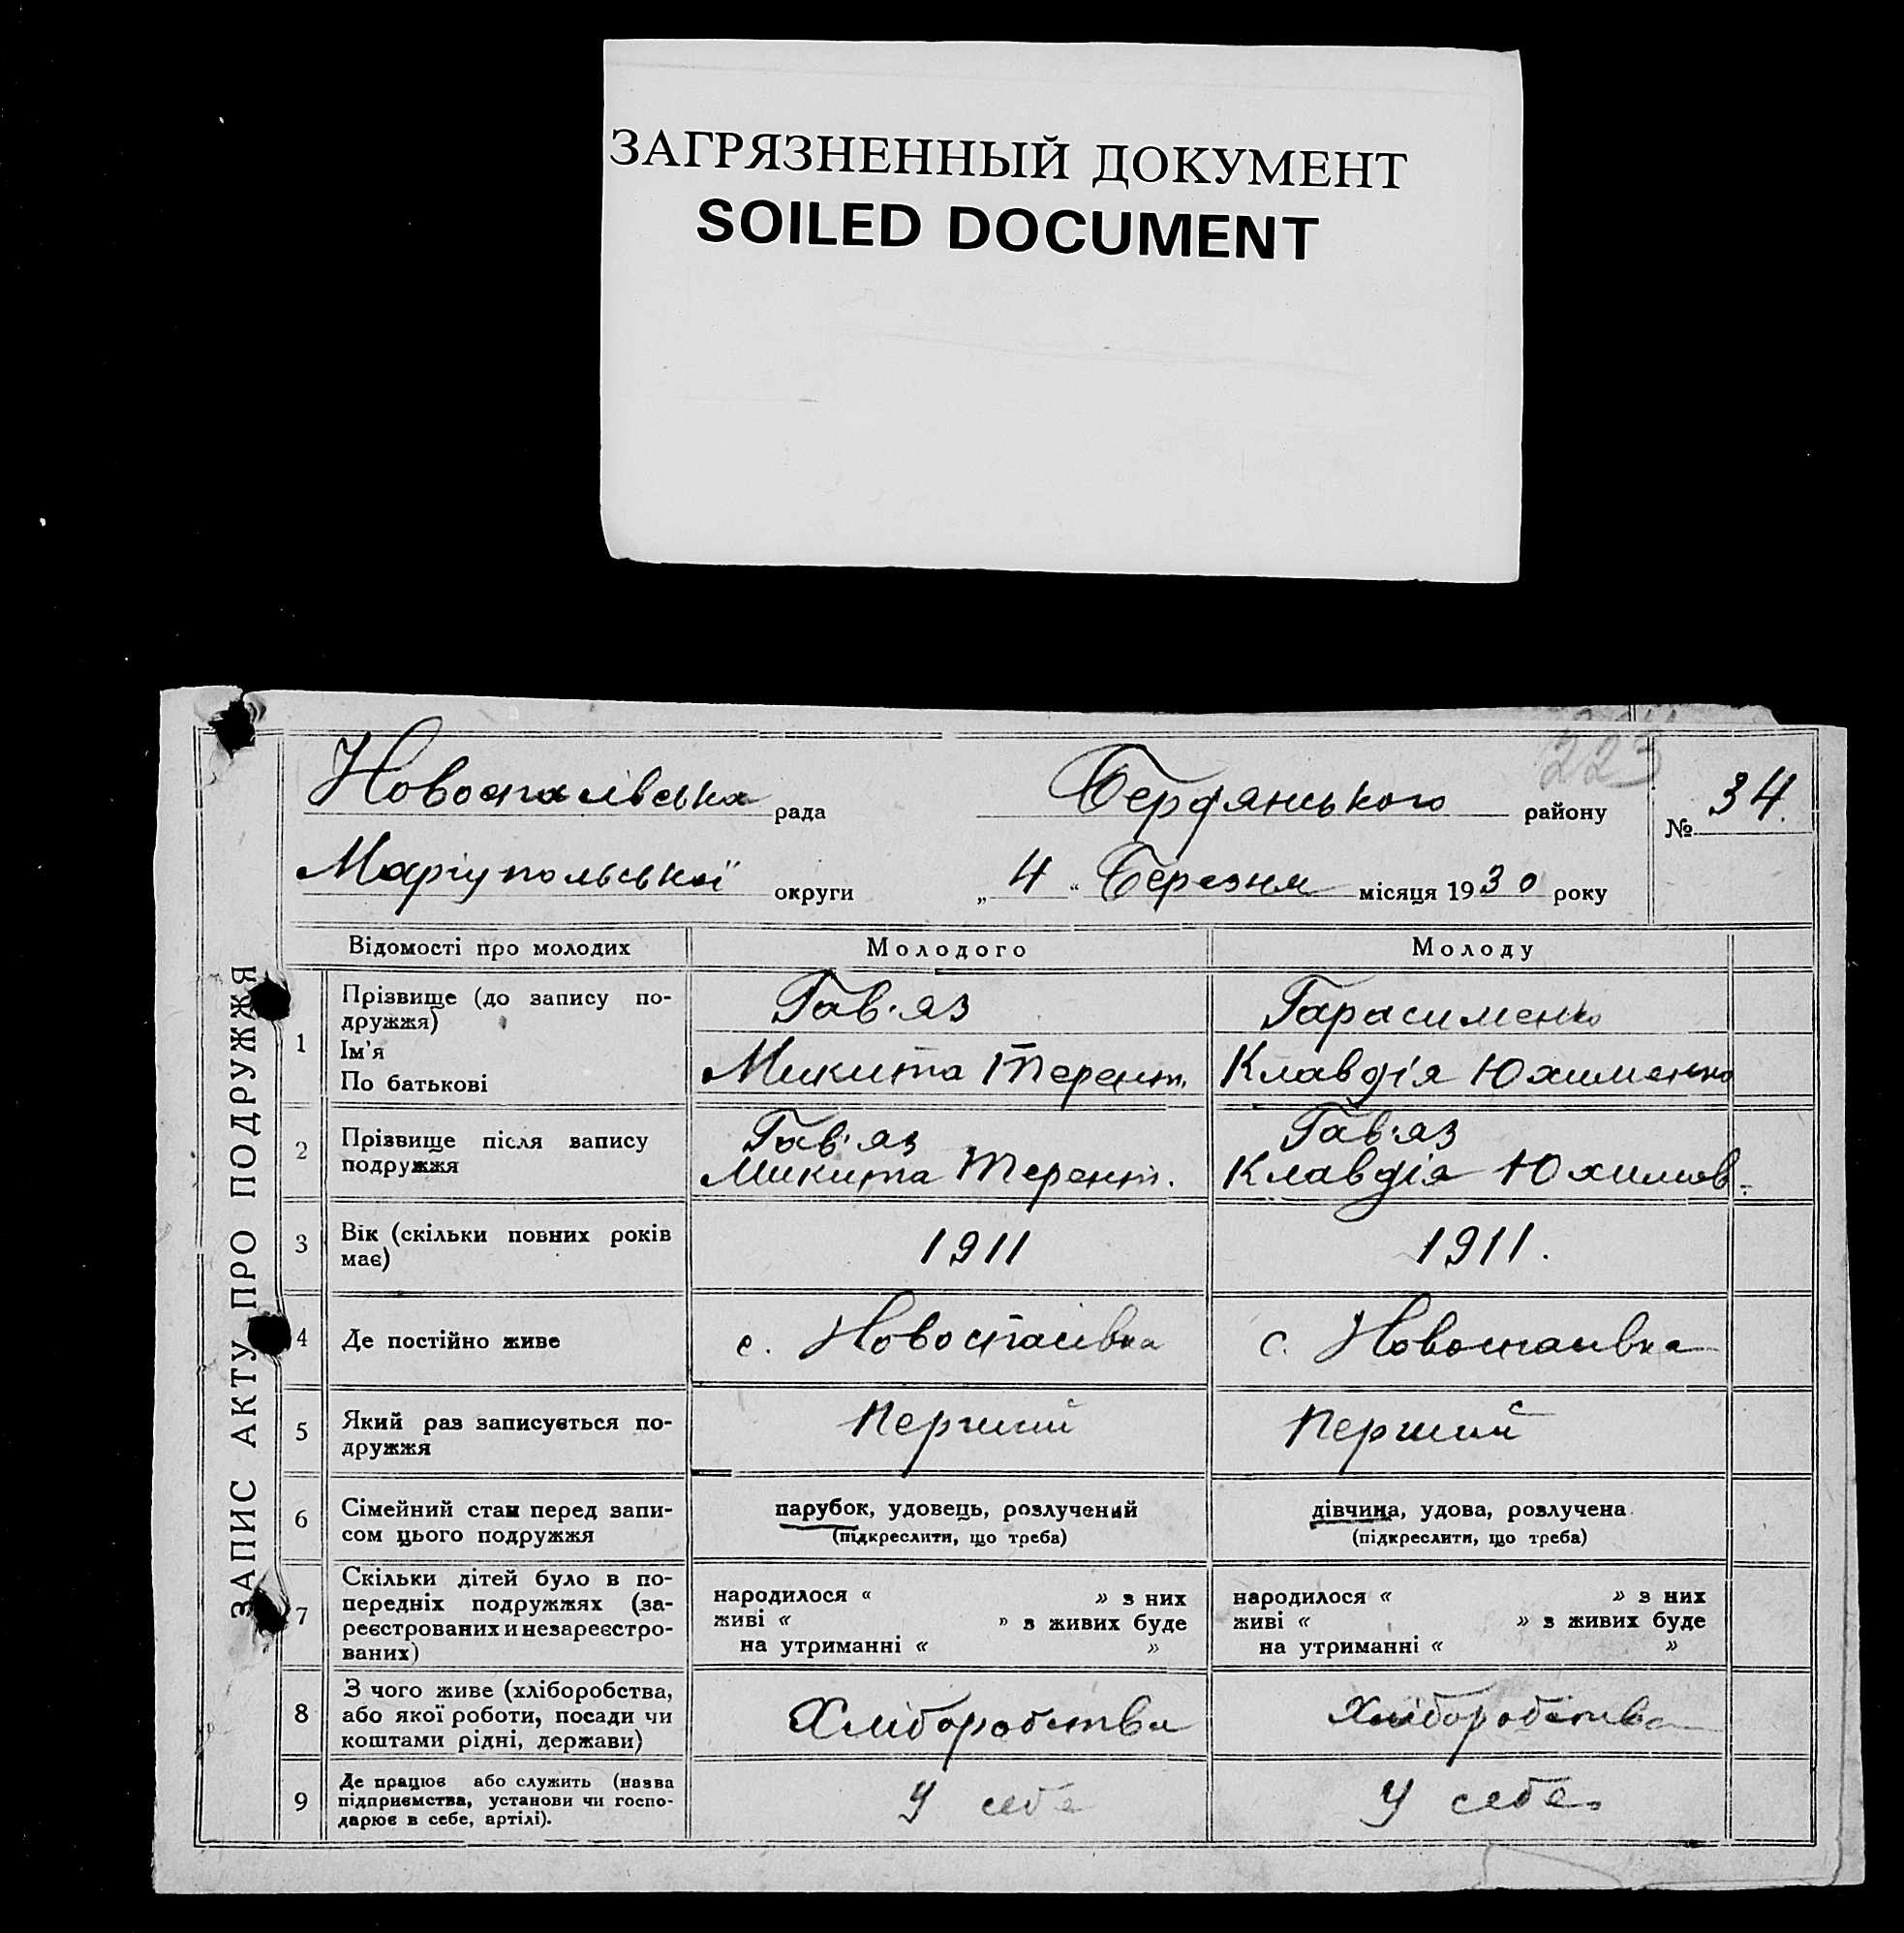 ЗАГРЯЗНЕННЫЙ ДОКУМЕНТ
SOILED DOCUMENT
223
Новоспасівська рада Бердянського району № 34.
Маріупольської округи „4“ Березня місяця 1930 року
ЗАПИС АКТУ ПРО ПОДРУЖЖЯ
Відомості про молодих Молодого Молоду
1 Прізвище (до запису по-
дружжя) Гав'яз Гарасименко
Ім'я
По батькові Микита Терент. Клавдія Юхименко
2 Прізвище після запису
подружжя Гав'яз Гав'яз
Микита Терент. Клавдія Юхимов.
3 Вік (скільки повних років
має) 1911 1911.
4 Де постійно живе с. Новоспасівка с. Новоспасівка
5 Який раз записується по-
дружжя Перший Перший
6 Сімейний стан перед запи-
сом цього подружжя
парубок, удовець, розлучений
(підкреслити, що треба)
дівчина, удова, розлучена
(підкреслити, що треба)
7 Скільки дітей було в по-
передніх подружжях (за-
реєстрованих и незареєстро-
ваних)
народилося « » з них
живі « » з живих буде
на утриманні « »
народилося « » з них
живі « » з живих буде
на утриманні « »
8 З чого живе (хліборобства,
або якої роботи, посади чи
коштами рідні, держави)
Хліборобства Хліборобства
9 Де працює або служить (назва
підприємства, установи чи госпо-
дарює в себе, артілі).
У себе У себе.